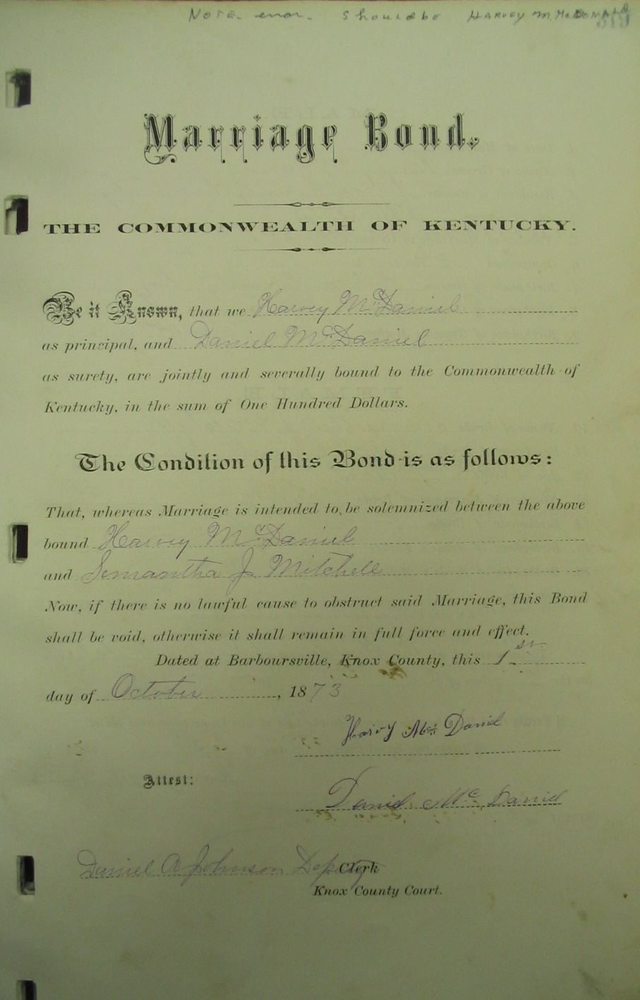 Note error. Should be HARVEY M McDONALD
Marriage Bond.
THE COMMONWEALTH OF KENTUCKY.
Be it Known, that we Harvey McDaniel
as principal, and Daniel McDaniel
as surety, are jointly and severally bound to the Commonwealth of
Kentucky, in the sum of One Hundred Dollars.
The Condition of this Bond is as follows:
That, whereas Marriage is intended to be solemnized between the above
bound Harvey McDaniel
and Semantha J Mitchell
Now, if there is no lawful cause to obstruct said Marriage, this Bond
shall be void, otherwise it shall remain in full force and effect.
Dated at Barboursville, Knox County, this 1st
day of October, 1873
Harvy Mc Daniel
Attest:
Daniel Mc Daniel
Daniel Johnson Deputy Clerk
Knox County Court.